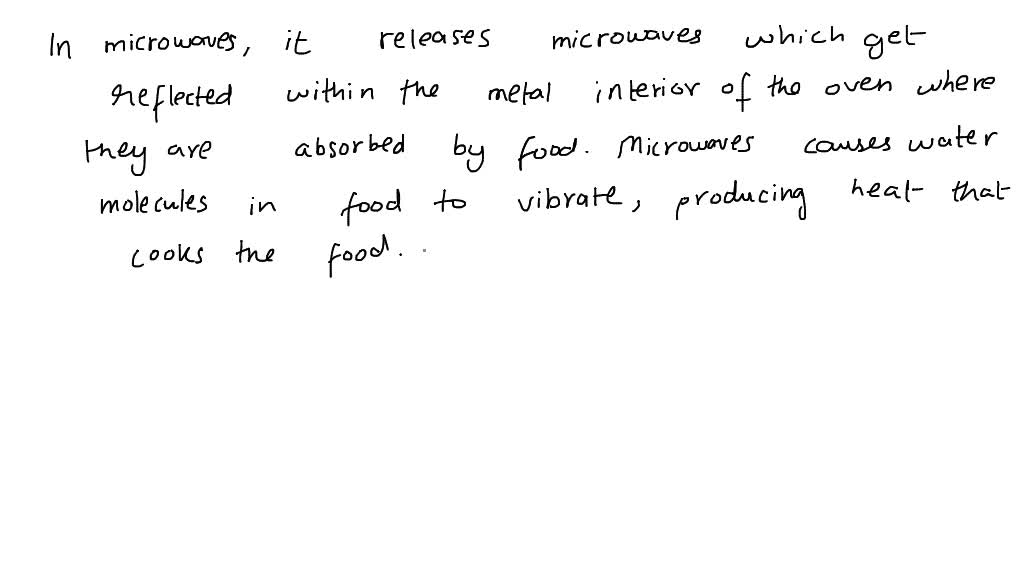 In microwaves, it releases microwaves which get
reflected within the metal interior of the oven where
they are absorbed by food. Microwaves causes water
molecules in food to vibrate, producing heat that
cooks the food.